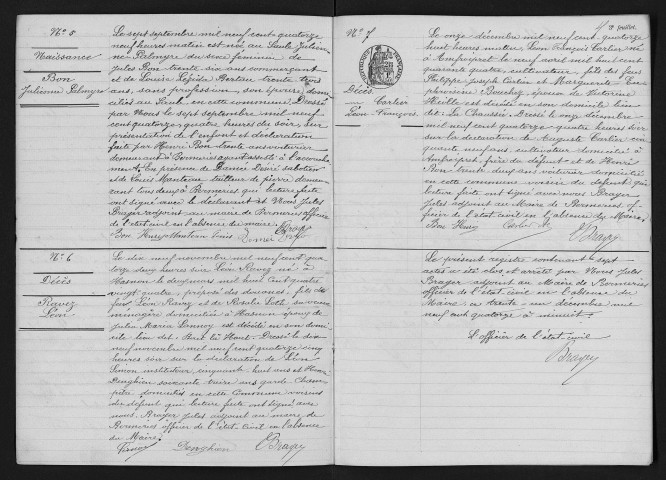 N° 5
Naissance
Bon
Julienne Pélagie
Le sept septembre mil neuf cent quatorze
neuf heures matin est née au Saule Julien-
ne Pélagie du sexe féminin de
Jules Bon trente six ans commerçant
et de Louise Berteau trente trois
ans, sans profession, son épouse, domi-
ciliés au Saule, en cette commune. Dressé
par Nous le sept septembre mil neuf
cent quatorze, quatre heures du soir, sur
présentation de l'enfant et déclaration
faite par Henri Bon trente ans voiturier
demeurant à Bermeries ayant assisté à l'accouche-
ment. En présence de Désiré sabotier
et de Louis tailleur de pierre demeu-
rant tous deux à Bermeries qui lecture faite
ont signé avec le déclarant et Nous Jules
Brager adjoint au maire de Bermeries officier
de l'état civil en l'absence du maire.
Bon Henri Louis
Brager
N° 6
Décès
Ravez
Léon
Le dix neuf novembre mil neuf cent qua-
torze, heures Léon Ravez né à
Hasnon le deux mars mil huit cent quatre
vingt quatre, préposé des douanes, fils de
feu Léon Ravez et de Rosalie sa veuve
ménagère domiciliée à Hasnon, époux de
Julia Maria est décédé en son domi-
cile lieu dit: Dressé le dix
neuf novembre mil neuf cent quatorze cinq
heures soir sur la déclaration de Léon
Simon instituteur cinquante huit ans et Henri
Denghien soixante trois ans garde cham-
pêtre domiciliés en cette Commune voisins
du défunt qui lecture faite ont signé avec
nous. Brager Jules adjoint au maire de
Bermeries officier de l'état civil en l'absence
du Maire.
Denghien Brager
N° 7
Décès
Carlier
Léon François
Le onze décembre mil neuf cent quatorze
huit heures matin, Léon François Carlier né
à Amfroipret le neuf avril mil huit cent
quarante quatre, cultivateur, fils des feus
Philippe Joseph Carlier et Marguerite Eu-
phrosine Bouchez, époux de Victorine
est décédé en son domicile lieu
dit: La Chaussée. Dressé le onze décembre
mil neuf cent quatorze quatre heures soir
sur la déclaration de Auguste Carlier cin-
quante neuf ans, cultivateur domicilié à
Amfroipret, frère du défunt et de Henri
Bon trente deux ans voiturier domicilié
en cette commune voisin du défunt qui
lecture faite ont signé avec nous Brager
Jules adjoint au Maire de Bermeries of-
ficier de l'état civil en l'absence du Maire.
Bon Henri Carlier
Brager
Le présent registre contenant sept
actes a été clos et arrêté par Nous Jules
Brager adjoint au Maire de Bermeries
officier de l'état civil en l'absence du
Maire, ce trente et un décembre mil
neuf cent quatorze à minuit.
L'officier de l'état civil
Brager